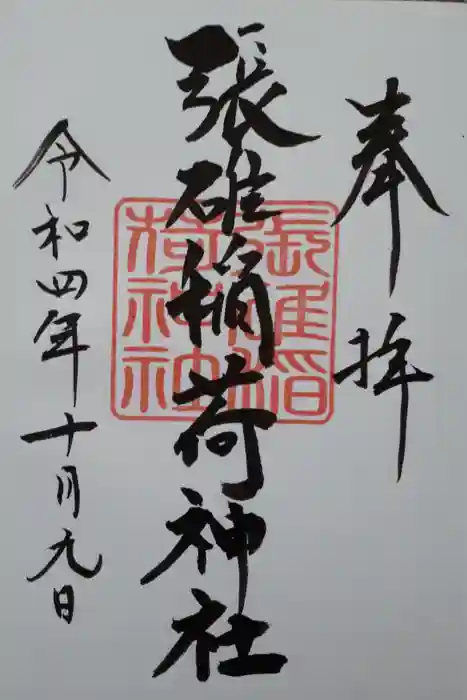 奉拝
張碓稲荷神社
張碓稲荷神社
令和四年十月九日